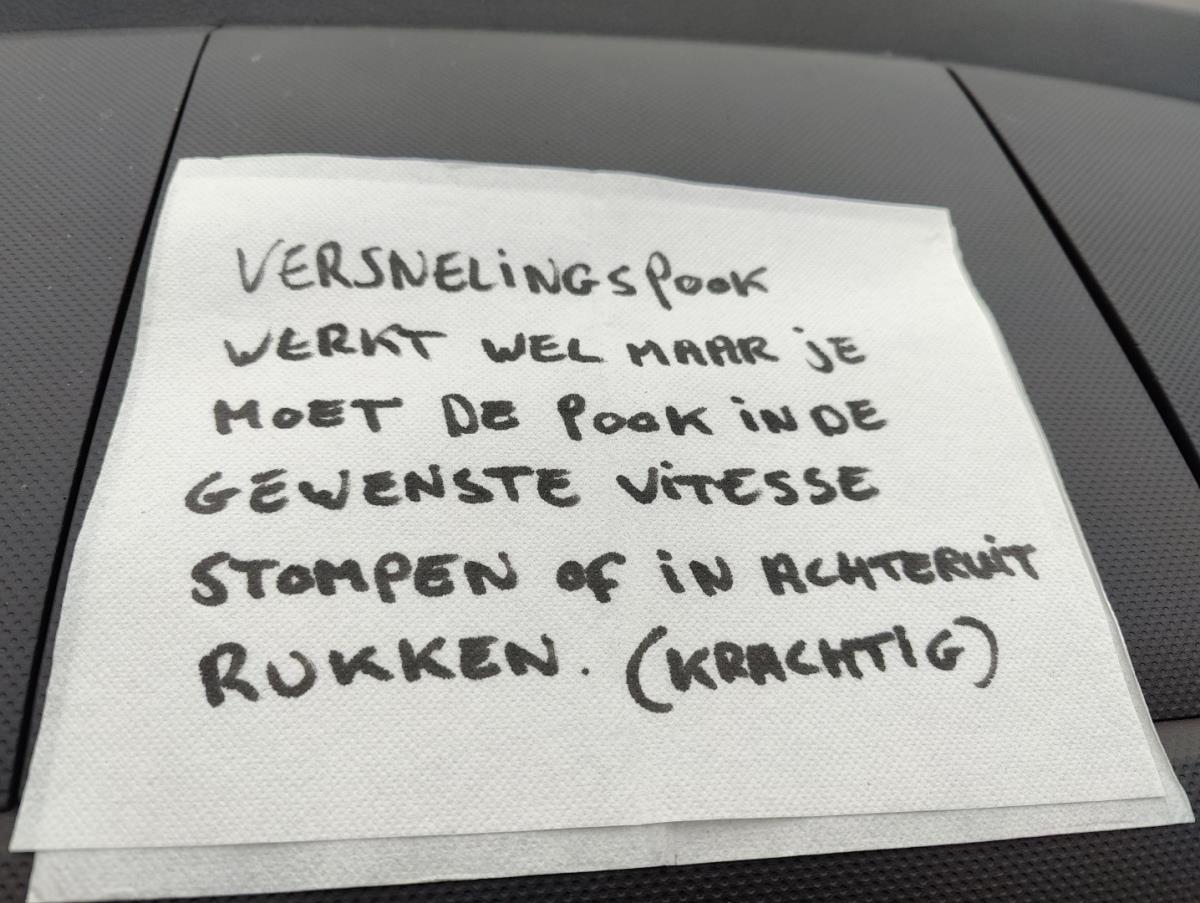 VERSNELINGSPOOK
WERKT WEL MAAR JE
MOET DE POOK IN DE
GEWENSTE VITESSE
STOMPEN OF IN ACHTERUIT
RUKKEN. (KRACHTIG)